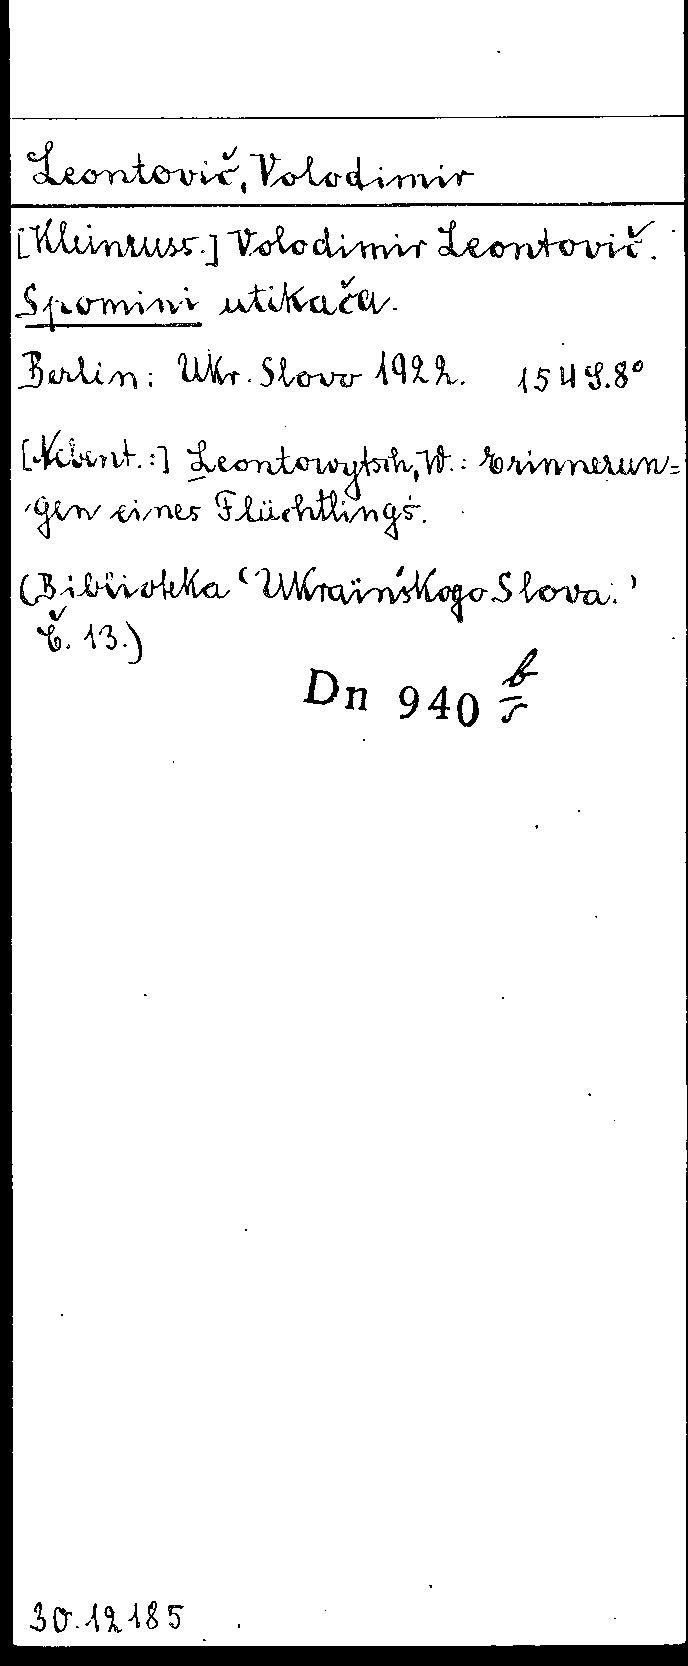 Leontovič, Volodimir
[Kleinruss.] Volodimir Leontovič.
Spomini utikača.
Berlin: Ukr. Slovo 1922. 154 S. 8°
[Nebent.:] Leontowytsch, W.: Erinnerun=
gen eines Flüchtlings.
(Biblioteka 'Ukraïnśkogo Slova.'
Č. 13.)
Dn 940 b/5
30.12185